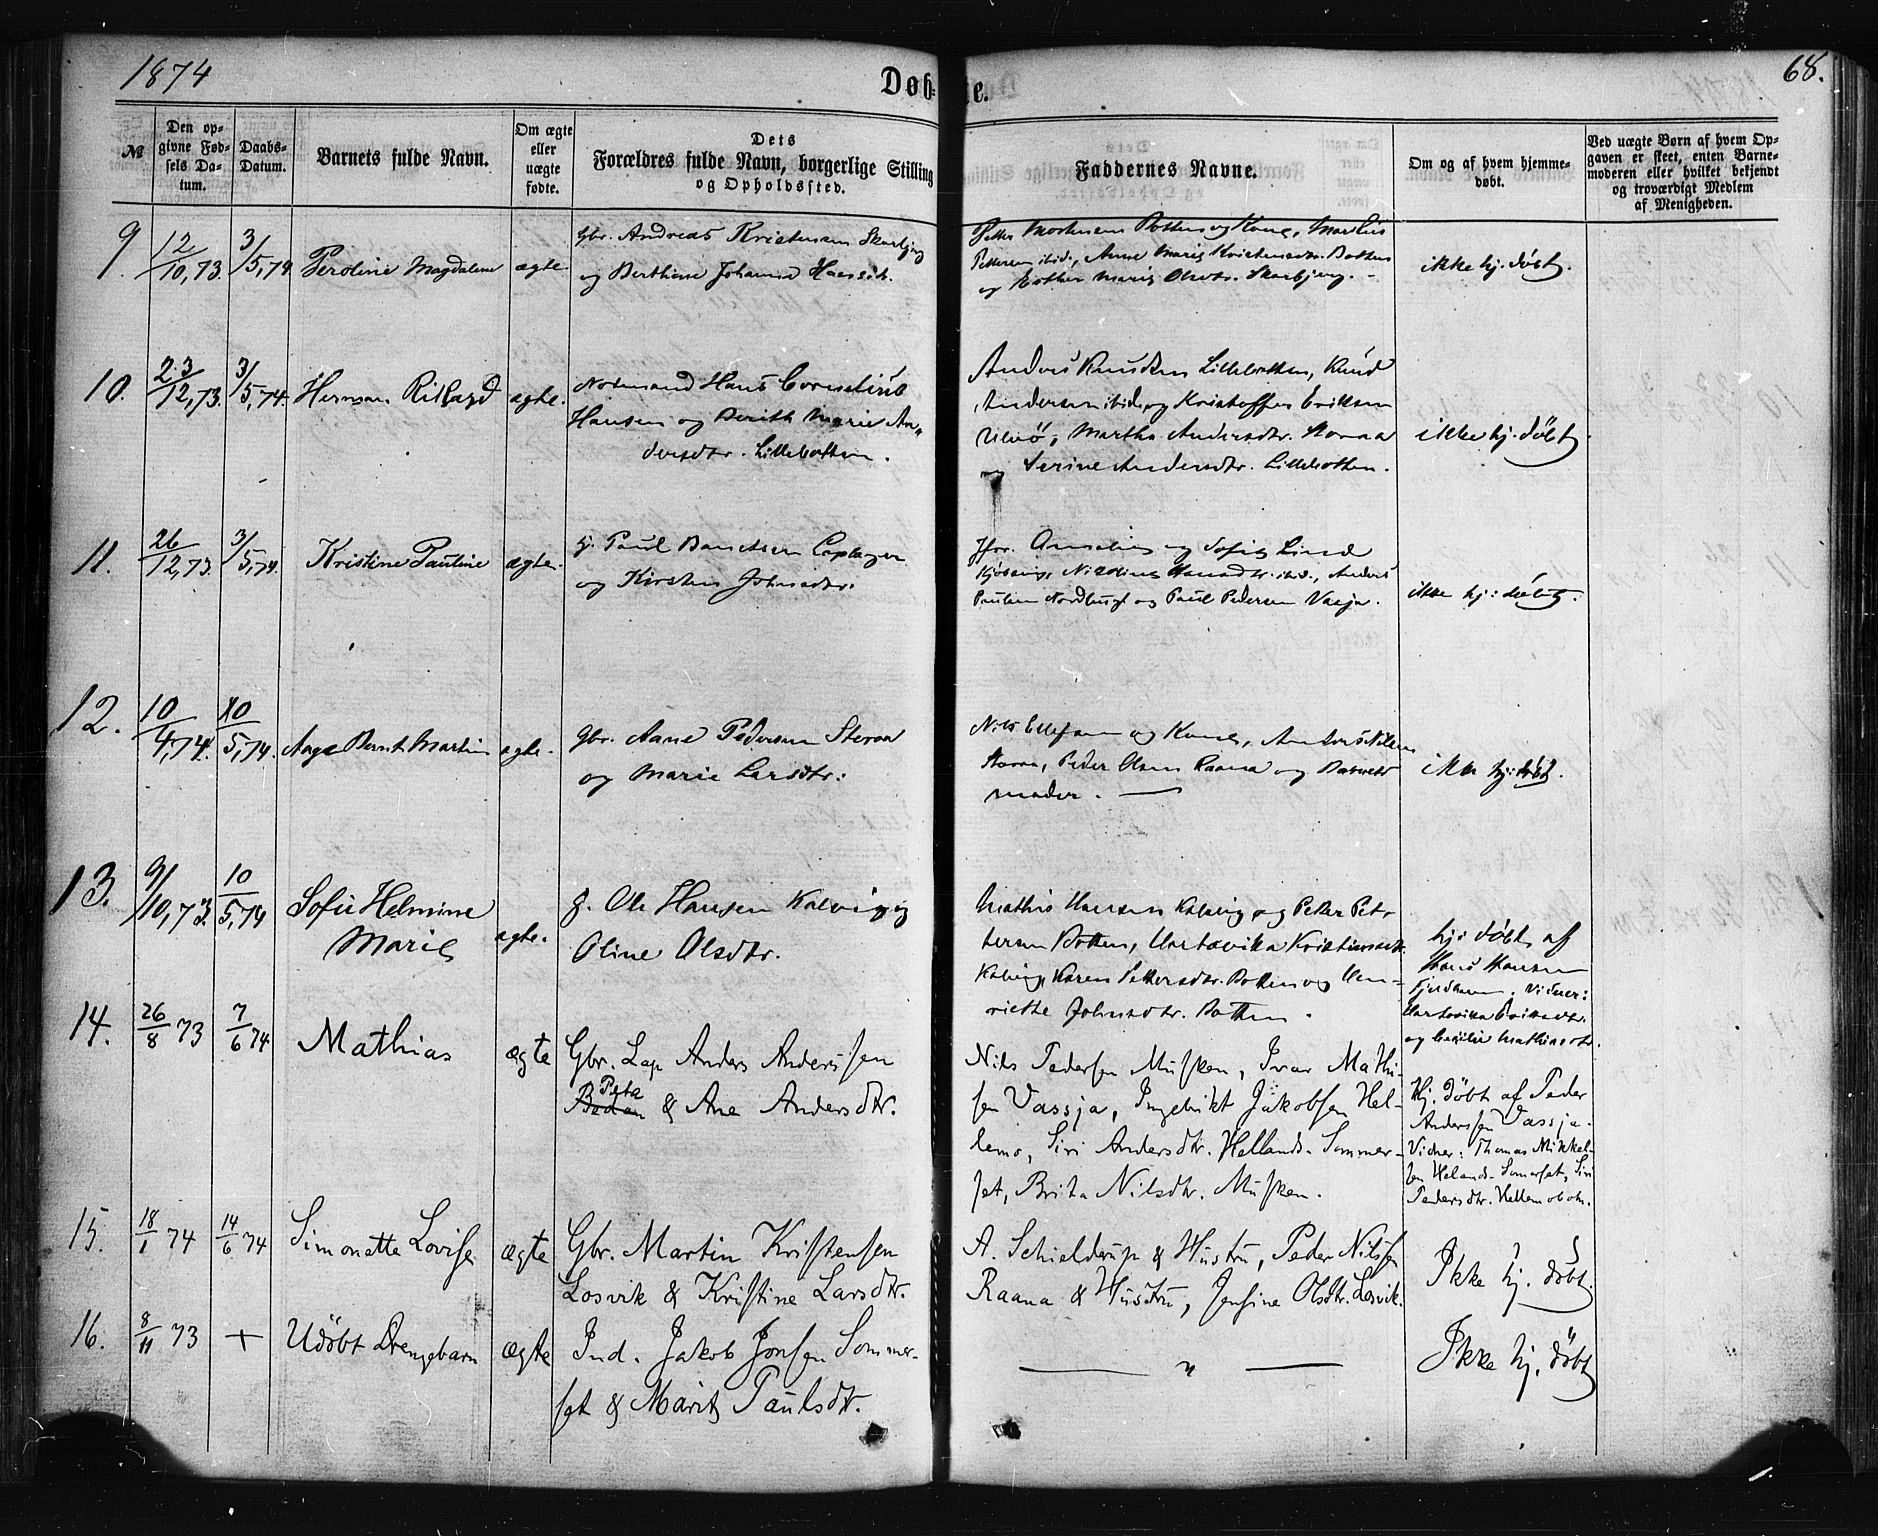 1874
Døb- te.
68.
№
Den op-
givne Fød-
sels Da-
tum.
Daabs-
Datum.
Barnets fulde Navn.
Om ægte
eller
uægte
fødte.
Dets
Forældres fulde Navn, borgerlige Stilling
og Opholdssted.
Faddernes Navne.
Om og af hvem hjemme-
døbt.
Ved uægte Børn af hvem Op-
gaven er skeet, enten Barne-
moderen eller hvilket bekjendt
og troværdigt Medlem
af Menigheden.
9.
12/10,73.
3/5,74.
Peroline Magdalene
ægte
Gbr. Andreas Kristensen Skarbjerg
og Berthine Johanna
Petter Mortensen Botten og Kone, Marelius
Pettersen ibid., Anne Marie Kristensdtr. Botten
og Esther Marie Olsdtr. Skarbjerg.
ikke hj. døbt.
10.
23/12,73.
3/5,74.
Herman Rikhard
ægte.
Nordmand Hans Cornelius
Hansen og Berith Marie An-
dersdtr. Lillebotten.
Anders Knudsen Lillebotten, Knud
Andersen ibid. og Kristoffer Eriksen
Ulvø, Martha Andersdtr. Staraa
og Serine Andersdtr. Lillebotten.
ikke hj. døbt.
11.
26/12,73.
3/5,74.
Kristine Pauline
ægte.
Paul
og Kirsten Johnsdtr.
og Sofie Lind
Kjøbsvig, ibid., Anders
Paulsen Nordbugt og Paul Pedersen Vasja.
ikke hj: døbt.
12.
10/4,74.
10/5,74.
Aage Bernt Martin
ægte.
Gbr. Aane Pedersen Staraa
og Marie Larsdtr:
Nils Ellefsen og Kone, Anders Nilsen
Staraa, Peder Olsen Raana og Barnets
moder.
ikke hj: døbt.
13.
9/10,73.
10/5,74
Sofie Helmine
Marie
ægte.
g. Ole Hansen Kalvig og
Oline Olsdtr.
Mathis Hansen Kalvig og Petter Pet-
tersen Botten, Hartvika Kristiansdtr.
Kalvig, Karen Pettersdtr. Botten og Hen-
riette Johnsdtr. Botten.
hj: døbt af
Hans Hansen
Vidner:
Hartvika Eriksdtr.
og Cecilie Mathisdtr.
14.
26/8 73
7/6 74
Mathias
ægte
Gbr. Lap Anders Anderssen
& Ane Andersdtr.
Nils Pedersen Musken, Ivar Mathi-
sen Vassja, Ingebrikt Jakobsen Hel-
lemo, Siri Andersdtr. Hellands-Sommer-
set, Brita Nilsdtr. Musken.
Hj. døbt af Peder
Anderssen Vassja.
Vidner: Thomas Mikkel-
sen Helands-Somerset, Siri
Pedersdtr. Hellemobotn.
15.
18/1 74
14/6 74
Simonette Lovise
ægte
Gbr. Martin Kristensen
Losvik & Kristine Larsdtr.
A. Schielderup & Hustru, Peder Nilssen
Raana & Hustru, Jensine Olsdtr. Losvik.
Ikke hj. døbt.
16.
8/11 73
+
Udøbt Drengebarn
ægte
Ind. Jakob Jonsen Sommer-
set & Marit Paulsdtr.
— " —
Ikke hj. døbt